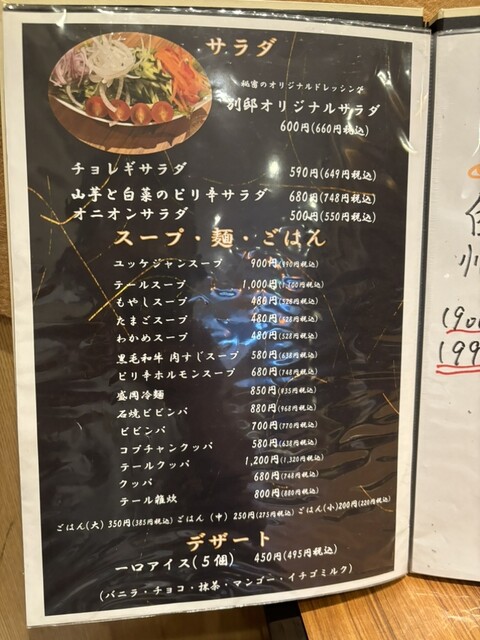 サラダ
秘密のオリジナルドレッシング
別邸オリジナルサラダ
600円(660円税込)
チョレギサラダ 590円(649円税込)
山芋と白菜のピリ辛サラダ 680円(748円税込)
オニオンサラダ 500円(550円税込)
スープ・麺・ごはん
ユッケジャンスープ 900円(990円税込)
テールスープ 1,000円(1,100円税込)
もやしスープ 480円(528円税込)
たまごスープ 480円(528円税込)
わかめスープ 480円(528円税込)
黒毛和牛 肉すじスープ 580円(638円税込)
ピリ辛ホルモンスープ 680円(748円税込)
盛岡冷麺 850円(935円税込)
石焼ビビンバ 880円(968円税込)
ビビンバ 700円(770円税込)
コプチャンクッパ 580円(638円税込)
テールクッパ 1,200円(1,320円税込)
クッパ 680円(748円税込)
テール雑炊 800円(880円税込)
ごはん(大) 350円(385円税込) ごはん (中) 250円(275円税込) ごはん(小)200円(220円税込)
デザート
一口アイス(5個) 450円(495円税込)
(バニラ・チョコ・抹茶・マンゴー・イチゴミルク)
190
199